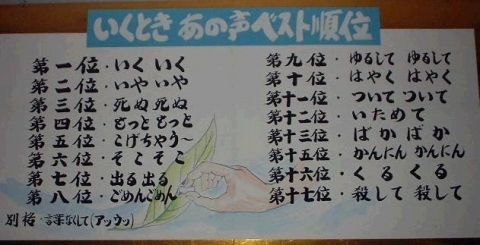 いくとき あの声ベスト順位
第一位・いく いく
第二位・いや いや
第三位・死ぬ 死ぬ
第四位・もっと もっと
第五位・こげちゃう〜
第六位・そこ そこ
第七位・出る 出る
第八位・ごめん ごめん
第九位・ゆるして ゆるして
第十位・はやく はやく
第十一位・ついて ついて
第十二位・いためて
第十三位・ばか ばか
第十五位・かんにん かんにん
第十六位・くる くる
第十七位・殺して 殺して
別格・言葉なして(アッウッ)